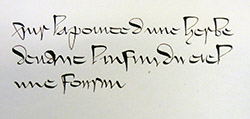 sur la pointe d une herbe
devant l infini du ciel
une fourmi